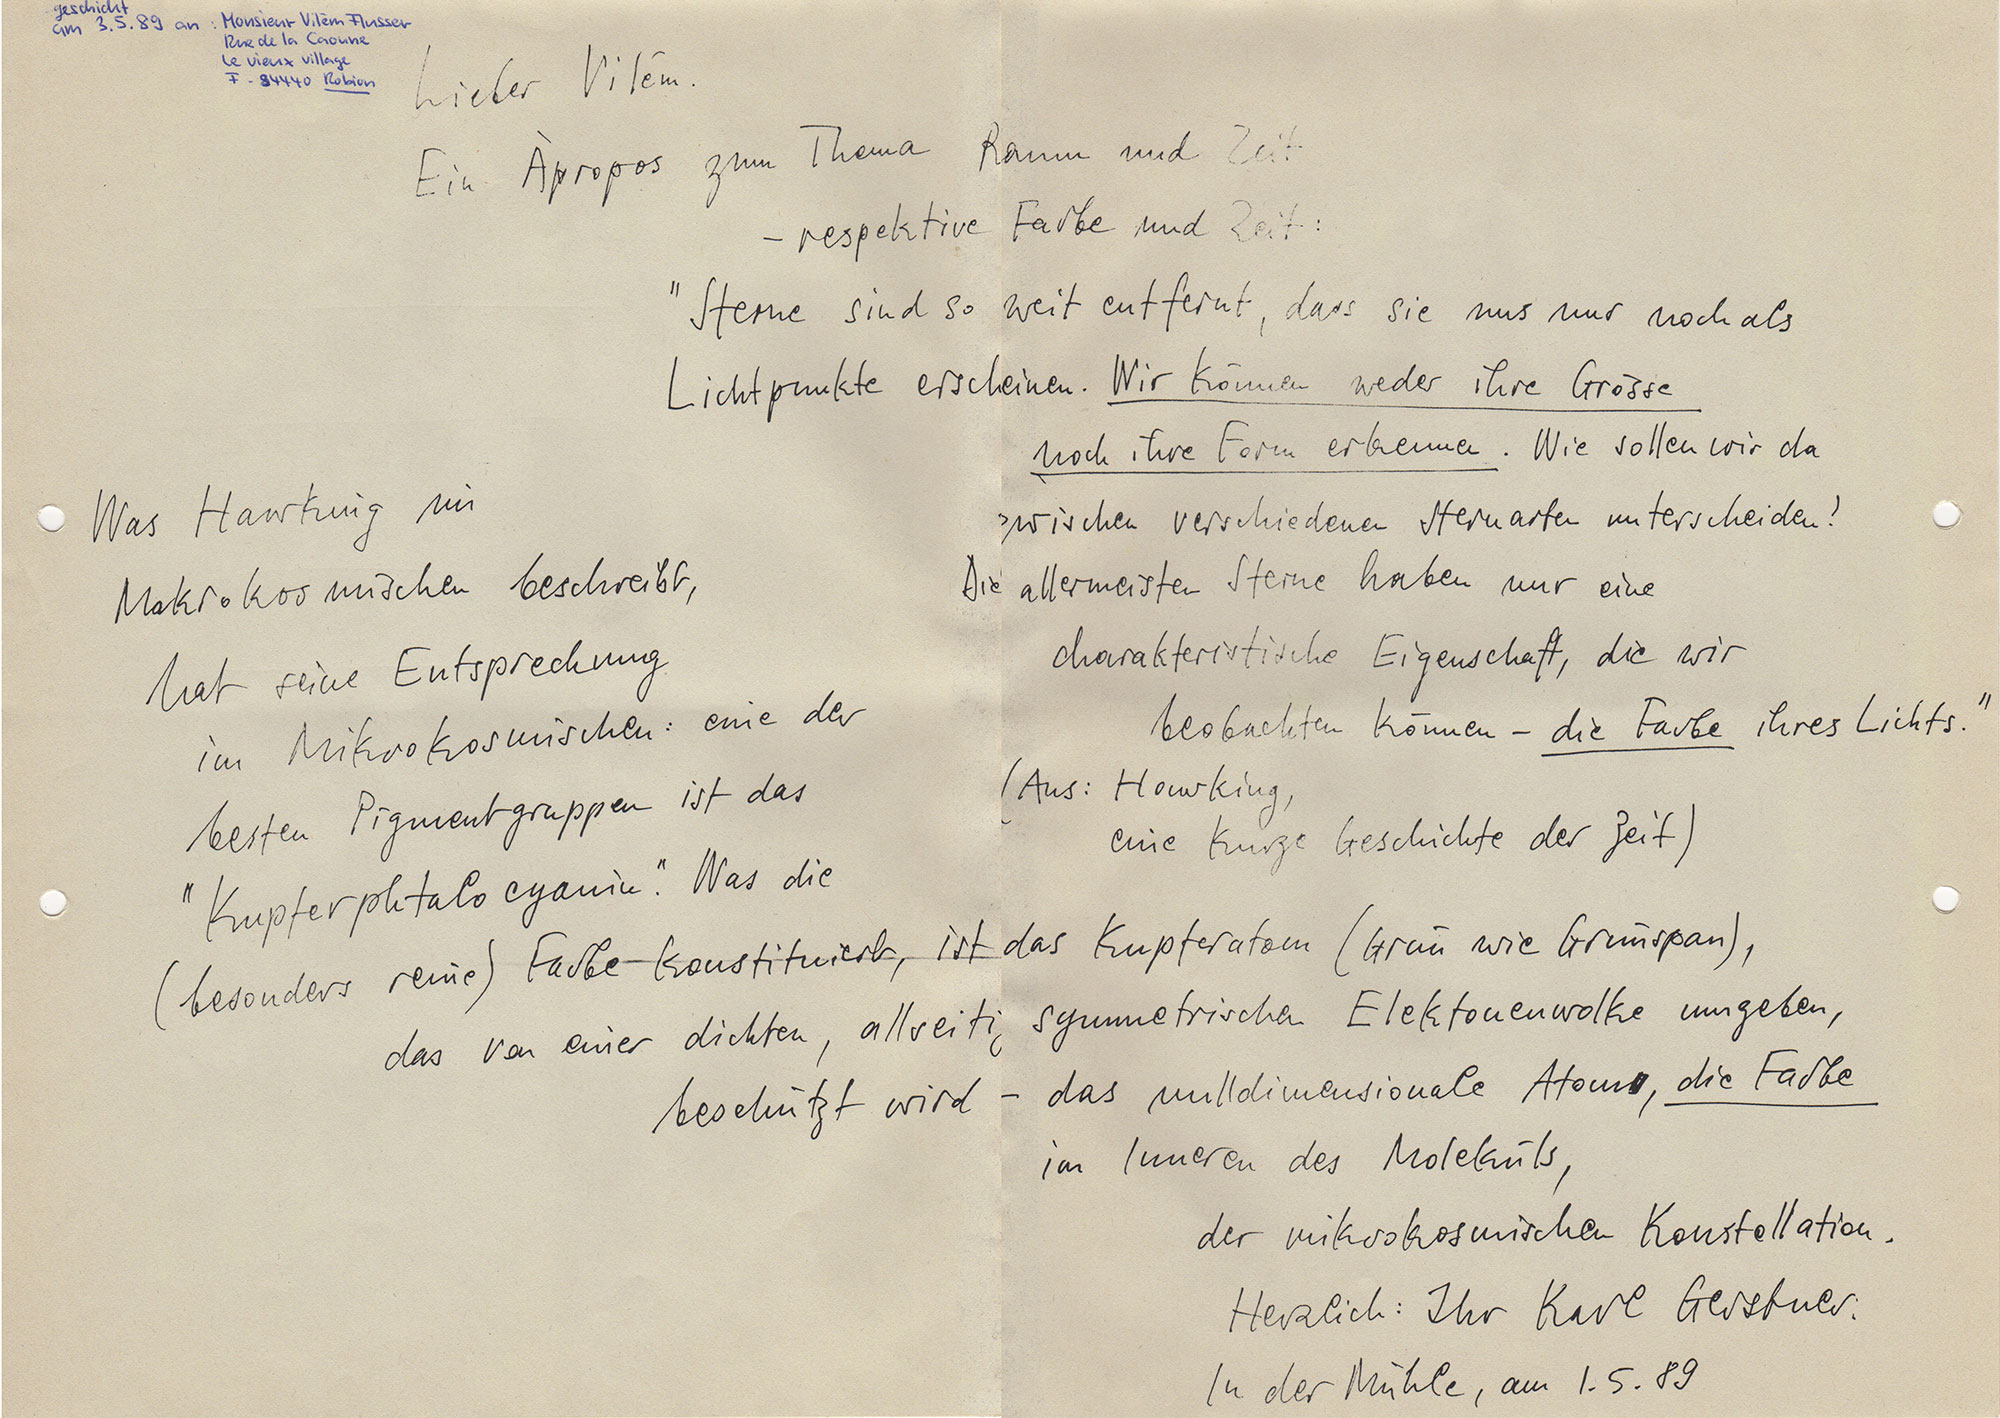 geschickt
am 3.5.89 an: Monsieur Vilèm Flusser
Rue de la Caoune
Le vieux village
F - 84440 Robion
Lieber Vilém.
Ein Àpropos zum Thema Raum und Zeit
– respektive Farbe und Zeit:
"Sterne sind so weit entfernt, dass sie uns nur noch als
Lichtpunkte erscheinen. Wir können weder ihre Grösse
noch ihre Form erkennen. Wie sollen wir da
zwischen verschiedenen Sternarten unterscheiden?
Die allermeisten Sterne haben nur eine
charakteristische Eigenschaft, die wir
beobachten können – die Farbe ihres Lichts."
(Aus: Hawking,
eine kurze Geschichte der Zeit)
Was Hawking im
Makrokosmischen beschreibt,
hat seine Entsprechung
im Mikrokosmischen: eine der
besten Pigmentgruppen ist das
"Kupferphtalocyanin". Was die
(besonders reine) Farbe konstituiert, ist das Kupferatom (Grün wie Grünspan),
das von einer dichten, allseitig symmetrischen Elektonenwolke umgeben,
beschützt wird – das nulldimensionale Atom, die Farbe
im Inneren des Moleküls,
der mikrokosmischen Konstellation.
Herzlich: Ihr Karl Gerstner.
In der Mühle, am 1.5.89